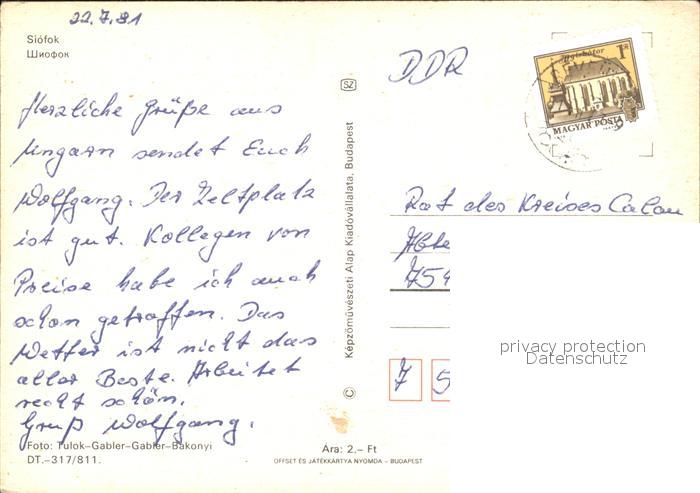 22.7.81
Siófok
Шиофок
Herzliche Grüße aus
Ungarn sendet Euch
Wolfgang. Der Zeltplatz
ist gut. Kollegen von
Preise habe ich auch
schon getroffen. Das
Wetter ist nicht das
aller Beste. Arbeitet
recht schön.
Gruß Wolfgang.
Foto: Tulok–Gabler–Gabler–Bakonyi
DT.–317/811.
SZ
Képzőművészeti Alap Kiadóvállalata, Budapest
©
Ára: 2.– Ft
OFFSET ÉS JÁTÉKKÁRTYA NYOMDA – BUDAPEST
DDR
1 Ft
Nyírbátor
MAGYAR POSTA
Rat des Kreises Calau
Abte
754
7 5
privacy protection
Datenschutz